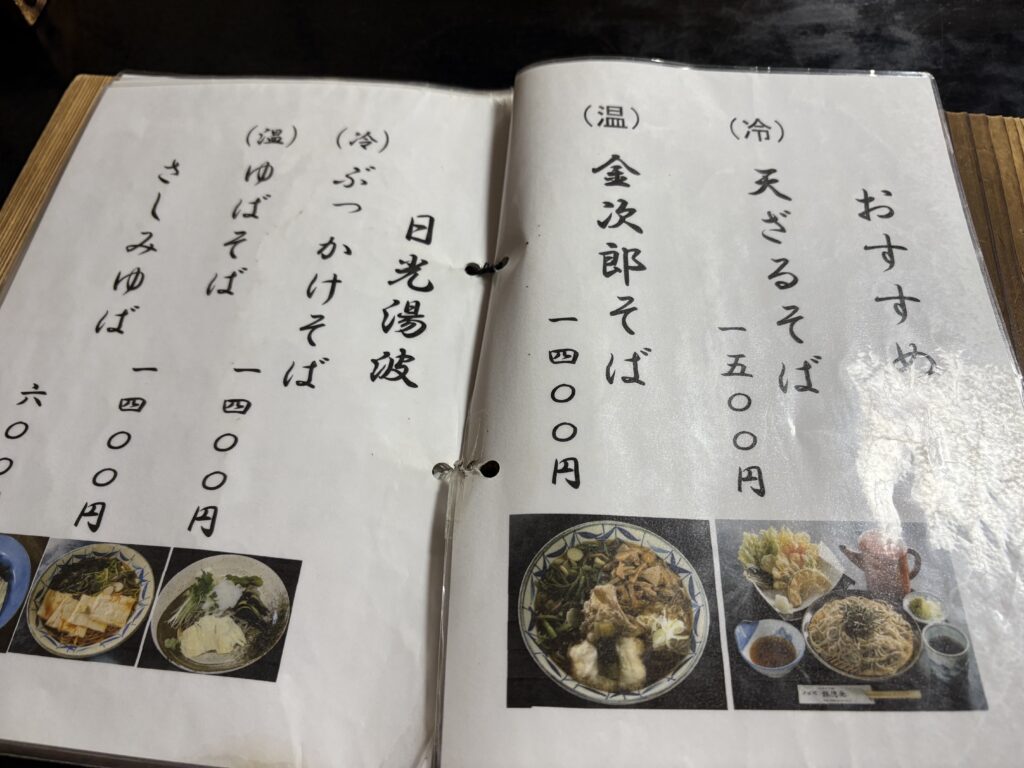 おすすめ
（冷）天ざるそば
一五〇〇円
（温）金次郎そば
一四〇〇円
日光湯波
（冷）ぶっかけそば
一四〇〇円
（温）ゆばそば
一四〇〇円
さしみゆば
六〇〇